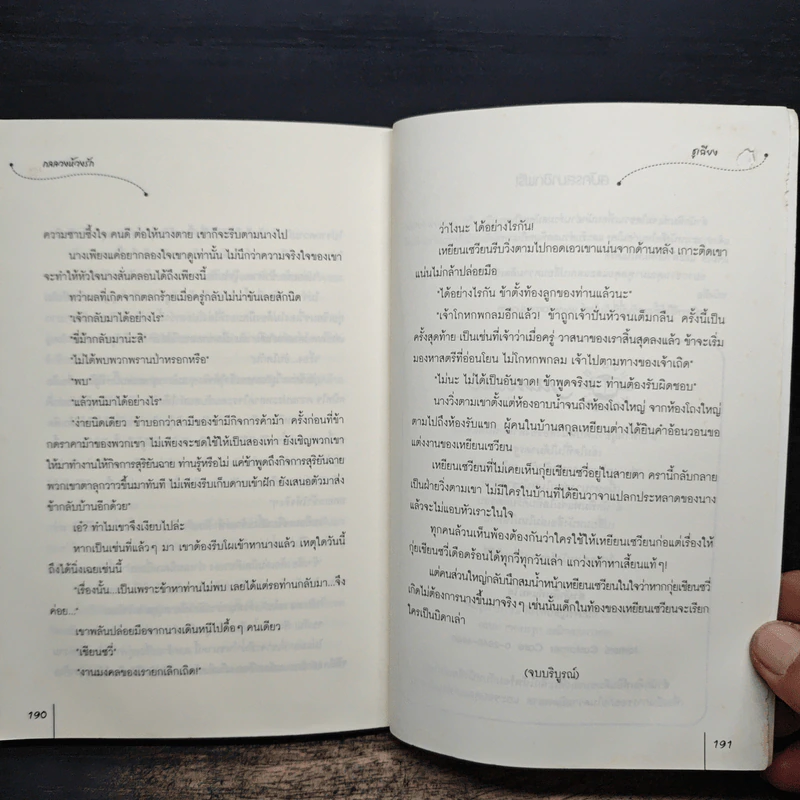 กลลวงบ่วงรัก
ความซาบซึ้งใจ คนดี ต่อให้นางตาย เขาก็จะรีบตามนางไป
นางเพียงแค่อยากลองใจเขาดูเท่านั้น ไม่นึกว่าความจริงใจของเขา
จะทำให้หัวใจนางสั่นคลอนได้ถึงเพียงนี้
ทว่าผลที่เกิดจากตลกร้ายเมื่อครู่กลับไม่น่าขันเลยสักนิด
"เจ้ากลับมาได้อย่างไร"
"ขี่ม้ากลับมาน่ะสิ"
"ไม่ได้พบพวกพรานป่าหรอกหรือ"
"พบ"
"แล้วหนีมาได้อย่างไร"
"ง่ายนิดเดียว ข้าบอกว่าสามีของข้ามีกิจการค้าม้า ครั้งก่อนที่ข้า
กดราคาม้าของพวกเขา ไม่เพียงจะชดใช้ให้เป็นสองเท่า ยังเชิญพวกเขา
ให้มาทำงานให้กิจการสุริยันฉาย ท่านรู้หรือไม่ แค่ข้าพูดถึงกิจการสุริยันฉาย
พวกเขาตาลุกวาวขึ้นมาทันที ไม่เพียงรีบเก็บดาบเข้าฝัก ยังเสนอตัวมาส่ง
ข้ากลับบ้านอีกด้วย"
เอ๋? ทำไมเขาจึงเงียบไปล่ะ
หากเป็นเช่นที่แล้วๆ มา เขาต้องรีบโผเข้าหานางแล้ว เหตุใดวันนี้
ถึงได้นิ่งเฉยเช่นนี้
"เรื่องนั้น...เป็นเพราะข้าหาท่านไม่พบ เลยได้แต่รอท่านกลับมา...จึง
ค่อย..."
เขาพลันปล่อยมือจากนางเดินหนีไปดื้อๆ คนเดียว
"เซียนซวี่"
"งานมงคลของเรายกเลิกเถิด!"
190
ซูเฉียง
ว่าไงนะ ได้อย่างไรกัน!
เหยียนเซวียนรีบวิ่งตามไปกอดเอวเขาแน่นจากด้านหลัง เกาะติดเขา
แน่นไม่กล้าปล่อยมือ
"ได้อย่างไรกัน ข้าตั้งท้องลูกของท่านแล้วนะ"
"เจ้าโกหกพกลมอีกแล้ว! ข้าถูกเจ้าปั่นหัวจนเต็มกลืน ครั้งนี้เป็น
ครั้งสุดท้าย เป็นเช่นที่เจ้าว่าเมื่อครู่ วาสนาของเราสิ้นสุดลงแล้ว ข้าจะเริ่ม
มองหาสตรีที่อ่อนโยน ไม่โกหกพกลม เจ้าไปตามทางของเจ้าเถิด"
"ไม่นะ ไม่ได้เป็นอันขาด! ข้าพูดจริงนะ ท่านต้องรับผิดชอบ"
นางวิ่งตามเขาตั้งแต่ห้องอาบน้ำจนถึงห้องโถงใหญ่ จากห้องโถงใหญ่
ตามไปถึงห้องรับแขก ผู้คนในบ้านสกุลเหยียนต่างได้ยินคำอ้อนวอนขอ
แต่งงานของเหยียนเซวียน
เหยียนเซวียนที่ไม่เคยเห็นกุ่ยเซียนซวี่อยู่ในสายตา ครานี้กลับกลาย
เป็นฝ่ายวิ่งตามเขา ไม่มีใครในบ้านที่ได้ยินวาจาแปลกประหลาดของนาง
แล้วจะไม่แอบหัวเราะในใจ
ทุกคนล้วนเห็นพ้องต้องกันว่าใครใช้ให้เหยียนเซวียนก่อแต่เรื่องให้
กุ่ยเซียนซวี่เดือดร้อนได้ทุกวี่ทุกวันเล่า แกว่งเท้าหาเสี้ยนแท้ๆ!
แต่คนส่วนใหญ่กลับนึกสมน้ำหน้าเหยียนเซวียนในใจว่าหากกุ่ยเซียนซวี่
เกิดไม่ต้องการนางขึ้นมาจริงๆ เช่นนั้นเด็กในท้องของเหยียนเซวียนจะเรียก
ใครเป็นบิดาเล่า
(จบบริบูรณ์)
191